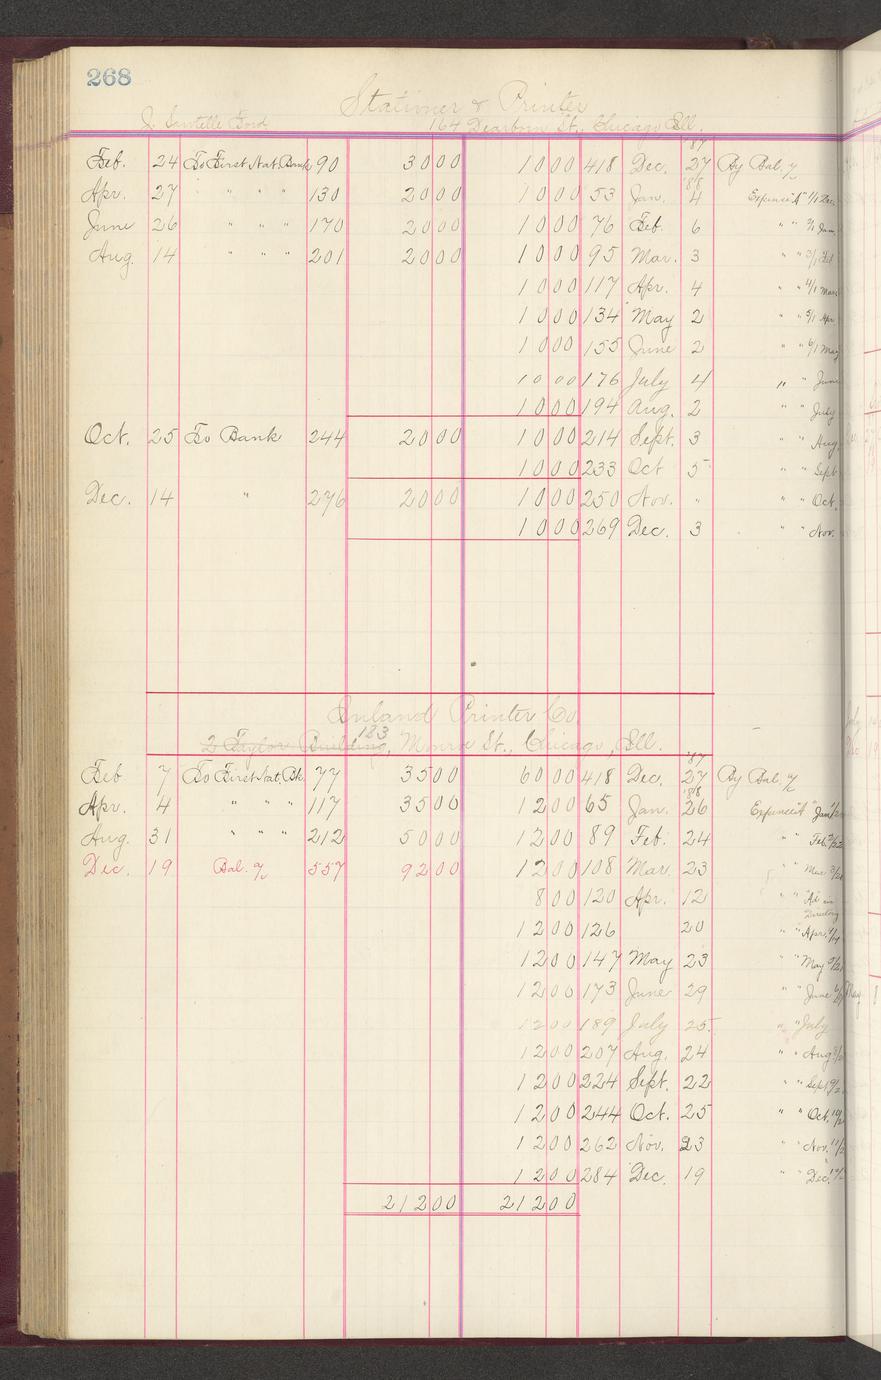 268
Stationer & Printer
J. Santelle Ford 164 Dearborn St., Chicago Ill.
'87
Feb. 24 To First Nat. Bank 90 3000 1000 418 Dec. 27 By Bal. %
'88
Apr. 27 " " " 130 2000 1000 53 Jan. 4 Expense 1/1 Dec.
June 26 " " " 170 2000 1000 76 Feb. 6 " " 2/1 Jan.
Aug. 14 " " " 201 2000 1000 95 Mar. 3 " " 3/1 Feb
1000 117 Apr. 4 " " 4/1 Mar.
1000 134 May 2 " " 5/1 Apr.
1000 155 June 2 " " 6/1 May
1000 176 July 4 " " June
1000 194 Aug. 2 " " July
Oct. 25 To Bank 244 2000 1000 214 Sept. 3 " " Aug.
1000 233 Oct 5 " " Sept
Dec. 14 " 276 2000 1000 250 Nov. " " " Oct.
1000 269 Dec. 3 " " Nov.
Inland Printer Co.
183
2 Taylor Building, Monroe St., Chicago, Ill.
'87
Feb 7 To First Nat. Bk. 77 3500 6000 418 Dec. 27 By Bal. %
'88
Apr. 4 " " " 117 3500 1200 65 Jan. 26 Expense " Jan
Aug. 31 " " " 212 5000 1200 89 Feb. 24 " " Feb.
Dec. 19 Bal. % 557 9200 1200 108 Mar. 23 " " Mar
800 120 Apr. 12 " " "Ad" in
Directory
1200 126 20 " " Apr.
1200 147 May 23 " " May
1200 173 June 29 " " June
1200 189 July 25 " " July
1200 207 Aug. 24 " " Aug
1200 224 Sept. 22 " " Sept
1200 244 Oct. 25 " " Oct.
1200 262 Nov. 23 " " Nov.
1200 284 Dec. 19 " " Dec.
21200 21200